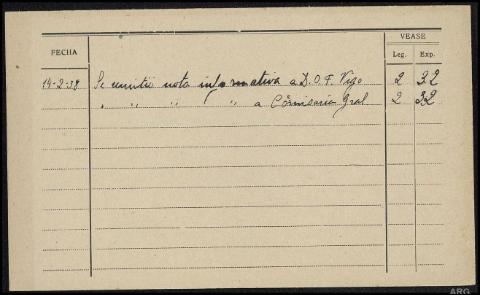 VEASE
FECHA Leg. Exp.
14-2-38 Se remitió nota informativa a D.O.F. Vigo 2 32
" " " " a Comisaria Gral 2 32
ARG.